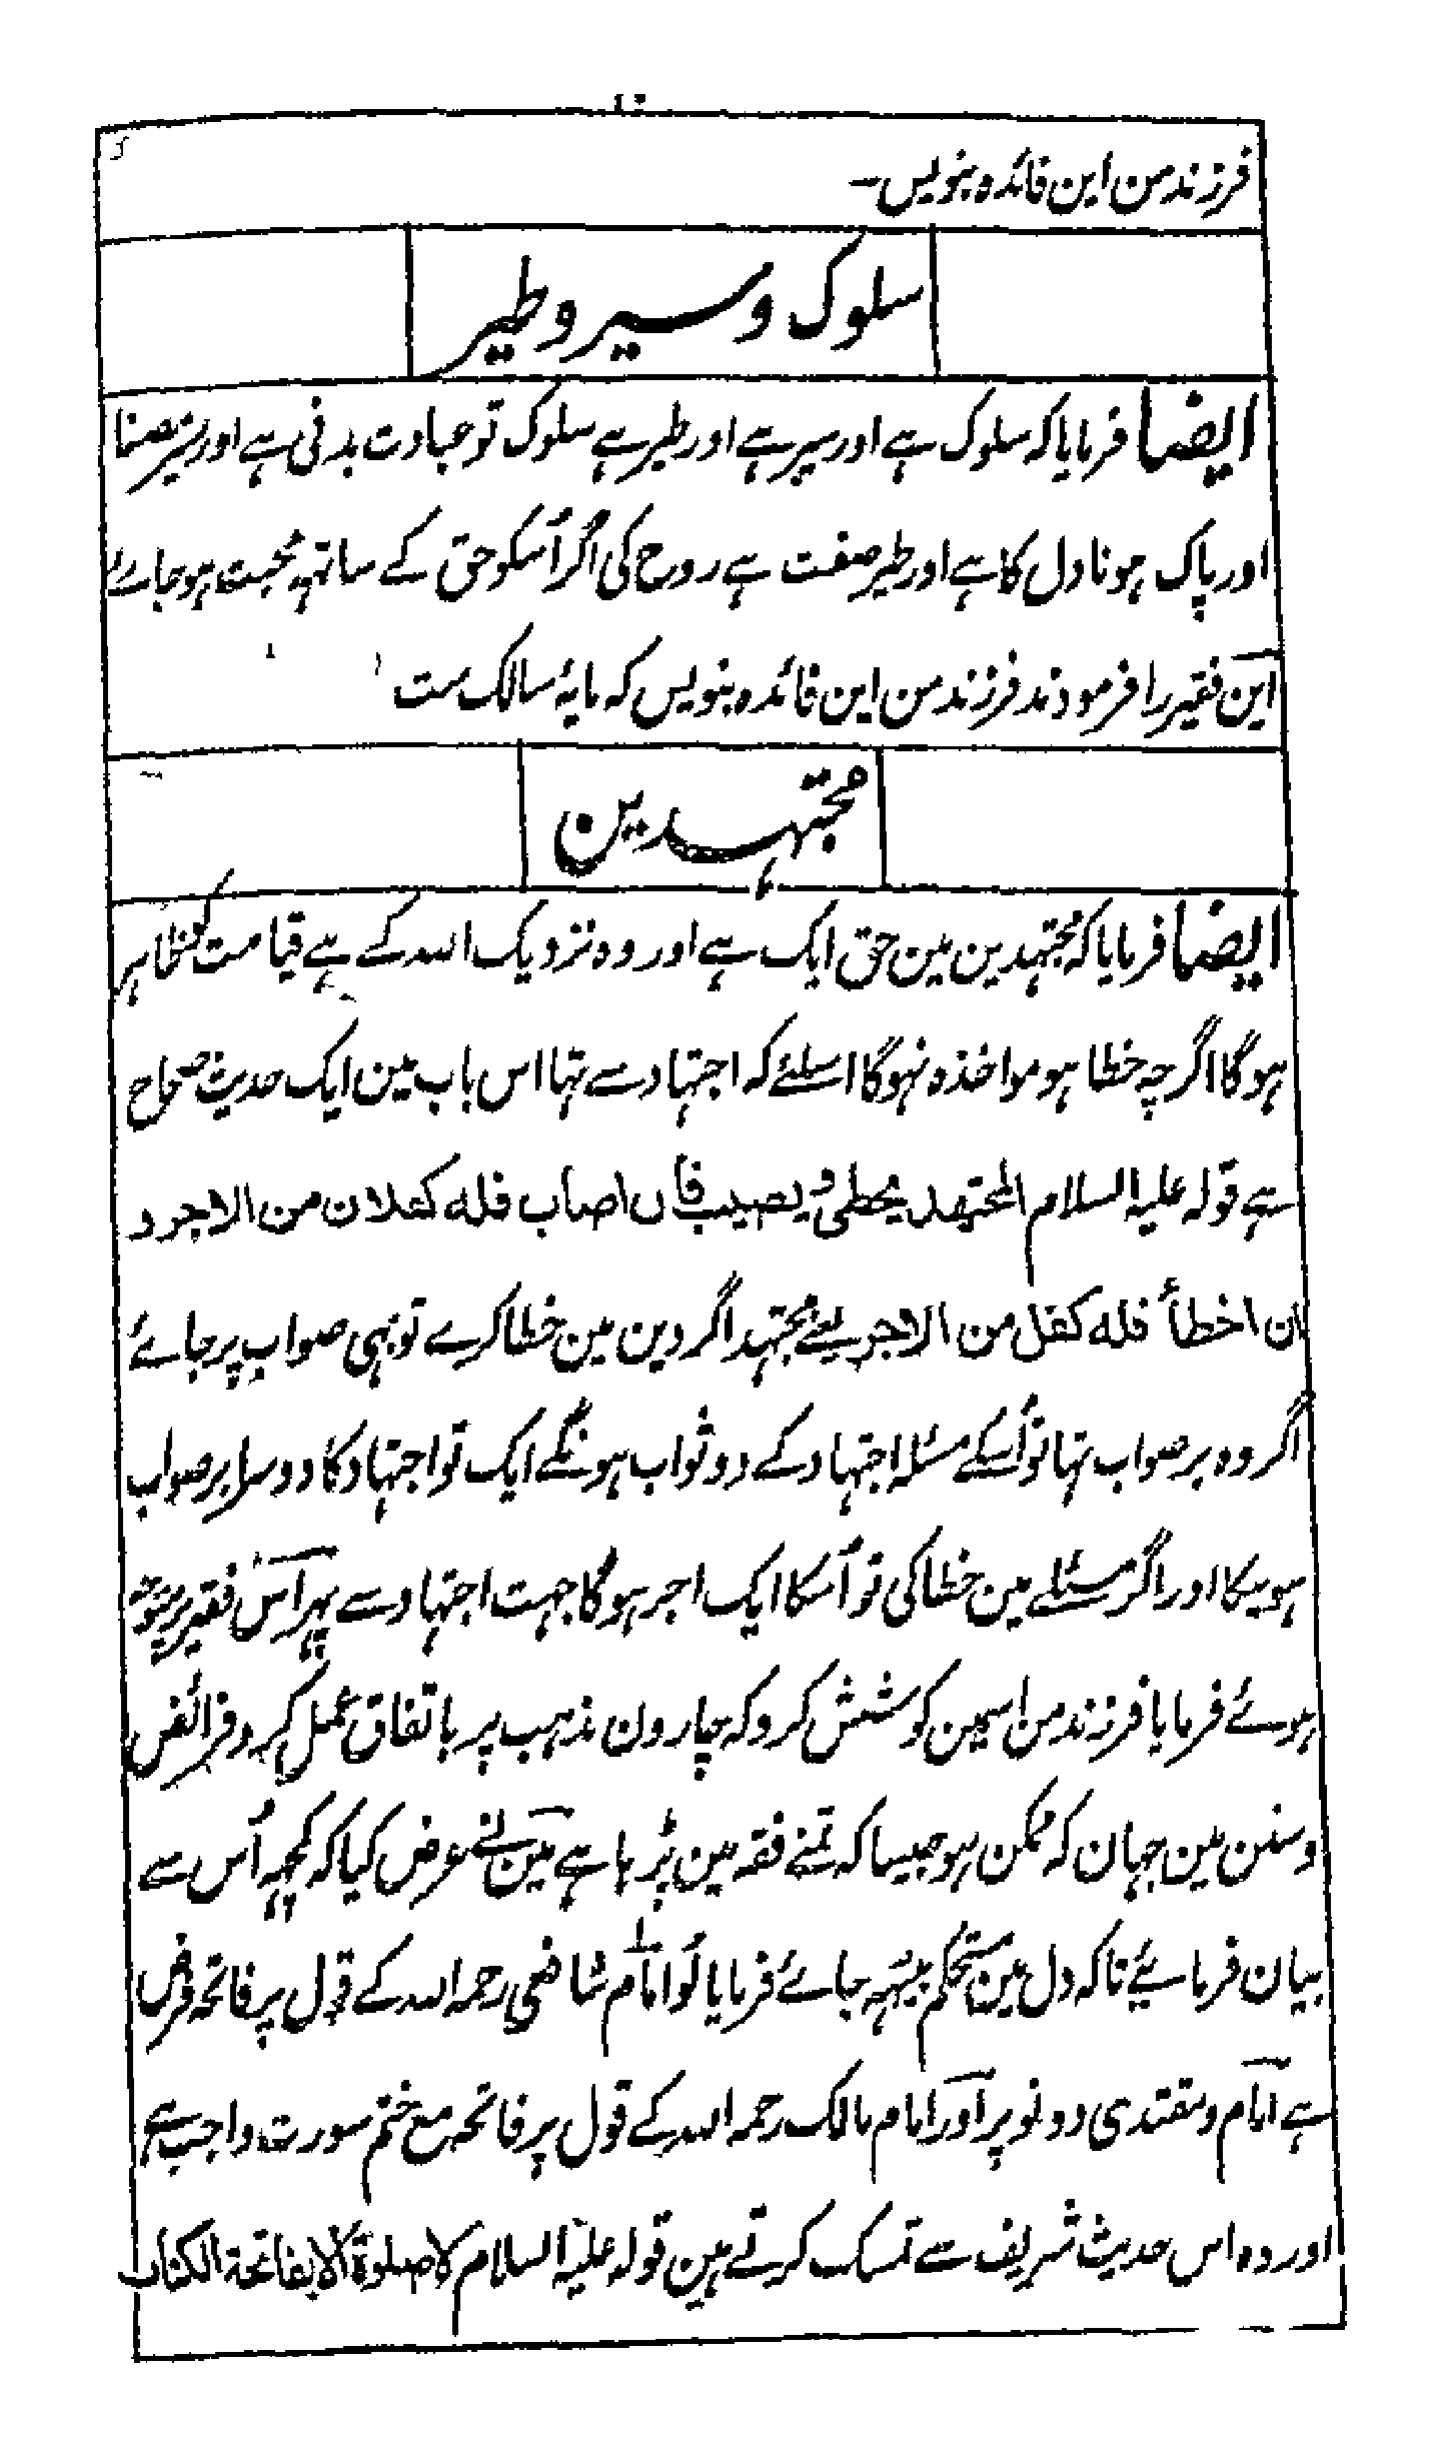 فرزند من این فائدہ بنویس
سلوک و سیر و طیر
ایضا فرمایا کہ سلوک ہے اور سیر ہے اور طیر ہے سلوک تو عبادت بدنی ہے اور سیر صفا
اور پاک ہونا دل کا ہے اور طیر صفت ہے روح کی اگر اُسکو حق کے ساتہہ محبت ہو جاے
این فقیر را فرمودند فرزند من این فائدہ بنویس کہ مایۂ سالک ست
مجتہدین
ایضا فرمایا کہ مجتہدین مین حق ایک ہے اور وہ نزدیک اللہ کے ہے قیامت کو ظاہر
ہوگا اگرچہ خطا ہو مواخذہ نہوگا اسلئے کہ اجتہاد سے تہا اس باب مین ایک حدیث صحاح
ہے قولہ علیہ السلام المجتهد يخطی و يصيب فان اصاب فله كفلان من الاجر و
ان اخطأ فله كفل من الاجر یعنے مجتہد اگر دین مین خطا کرے تو بہی صواب پر جائے
اگر وہ بر صواب تہا تو اُسکے مسئلہ اجتہاد کے دو ثواب ہونگے ایک تو اجتہاد کا دوسرا بر صواب
ہونیکا اور اگر مسئلے مین خطا کی تو اُسکا ایک اجر ہوگا جہت اجتہاد سے پہر اس فقیر پر متوجہ
ہوئے فرمایا فرزند من اسمین کوشش کرو کہ چارون مذہب پر باتفاق عمل کرو فرائض
و سنن مین جہان کہ ممکن ہو جیسا کہ تمنے فقہ مین پڑہا ہے مین نے عرض کیا کہ کچہہ اُس سے
بیان فرمائیے تاکہ دل مین مستحکم بیٹہہ جائے فرمایا تو امام شافعی رحمہ اللہ کے قول پر فاتحہ فرض
ہے امام و مقتدی دونو پر اور امام مالک رحمہ اللہ کے قول پر فاتحہ مع ختم سورت واجب ہے
اور وہ اس حدیث شریف سے تمسک کرتے ہین قولہ علیہ السلام لا صلوة الا بفاتحة الكتاب